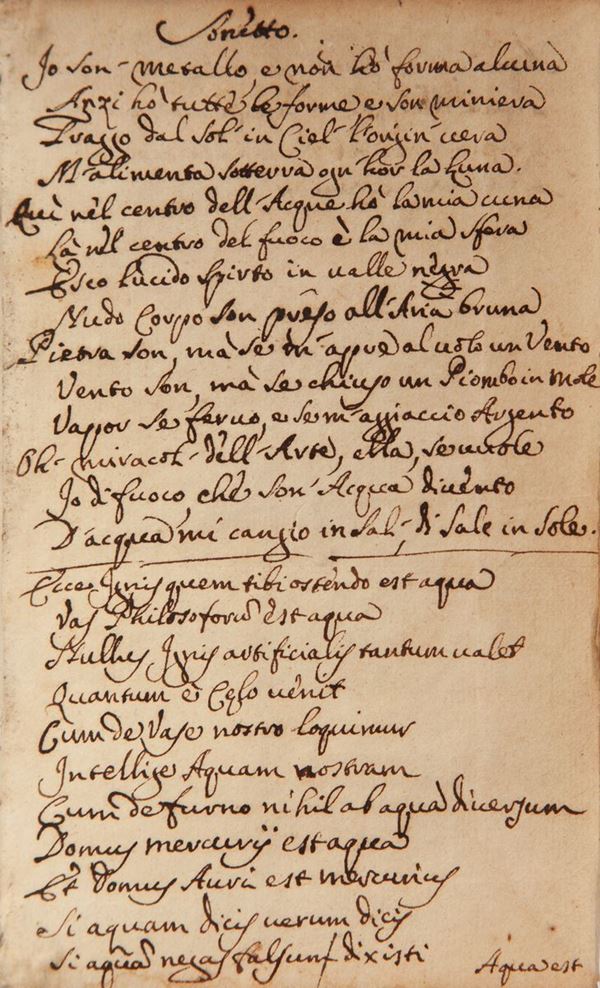 Sonetto.
Jo son metallo, e non hò forma alcuna
Anzi hò tutte le forme e son miniera
Traggo dal Sol in Ciel l'origin uera
M'alimenta sotterra ogn'hor la Luna.
Quì nel centro dell'Acque hò la mia cuna
Là nel centro del fuoco è la mia sfera
Esco lucido spirto in ualle nera
Nudo Corpo son preso all'Aria bruna
Pietra son, mà se m'apre al uolo un Vento
Vento son, mà se chiuso un Piombo in mole
Vapor se feruo, e se m'agiaccio Argento
Oh miracol dell'Arte, ella, se uuole
Io di fuoco, che son Acqua diuento
D'acqua mi cangio in Sal, di Sale in Sole.
Ecce Ignis quem tibi ostendo est aqua
Vas Philosoforũ est aqua
Nullus Ignis artificialis tantum ualet
Quantum è Celo uenit
Cum de Vase nostro loquimur
Intellige Aquam nostram
Cum de furno nihil ab aqua diuersum
Domus mercurij est aqua
Et Domus Auri est mercurius
Si aquam dicis uerum dicis
Si aquã negas falsum dixisti
Aqua est